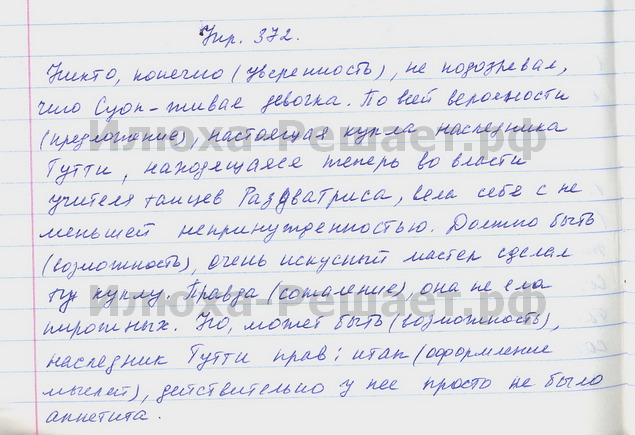 Упр. 372.
Никто, конечно (уверенность), не подозревал,
что Суок - живая девочка. По всей вероятности
(предположение), настоящая кукла наследника
Тутти, находящаяся теперь во власти
учителя танцев Раздватриса, вела себя с не
меньшей непринужденностью. Должно быть
(возможность), очень искусный мастер сделал
эту куклу. Правда (сожаление), она не ела
пирожных. Но, может быть (возможность),
наследник Тутти прав: итак (оформление
мыслей), действительно у нее просто не было
аппетита.
Илюха-Решает.рф
Илюха-Решает.рф